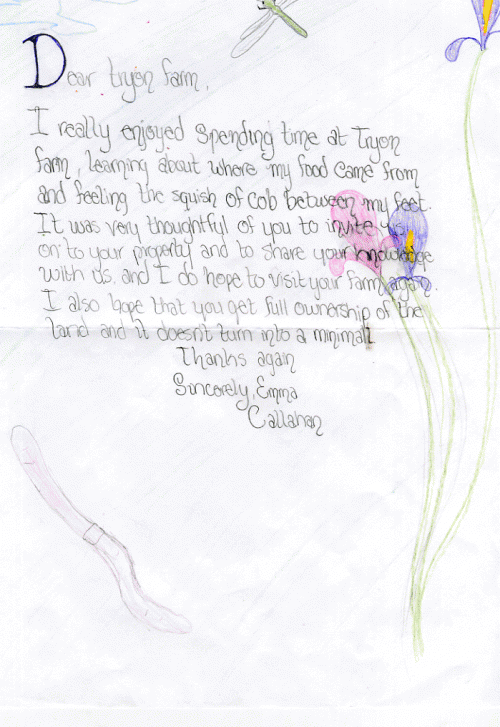 Dear tryon farm,
I really enjoyed spending time at Tryon
farm, learning about where my food came from
and feeling the squish of cob between my feet.
It was very thoughtful of you to invite us
on to your property and to share your knowledge
with us. and I do hope to visit your farm again.
I also hope that you get full ownership of the
land and it doesn't turn into a minimall.
Thanks again
Sincerely, Emma
Callahan